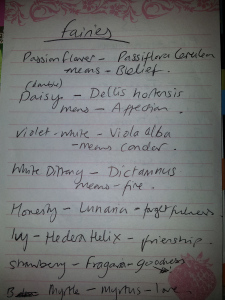 Fairies
Passion flower - Passiflora Cerulean
means - Belief.
(double)
Daisy - Bellis hortensis
means - Affection.
Violet-white - Viola alba
- means candor.
White Dittany - Dictamnus
means - fire.
Honesty - Lunaria - forgetfulness
Ivy - Hedera Helix - frienship.
Strawberry - Fragara - Goodness
Myrtle - myrtus - love